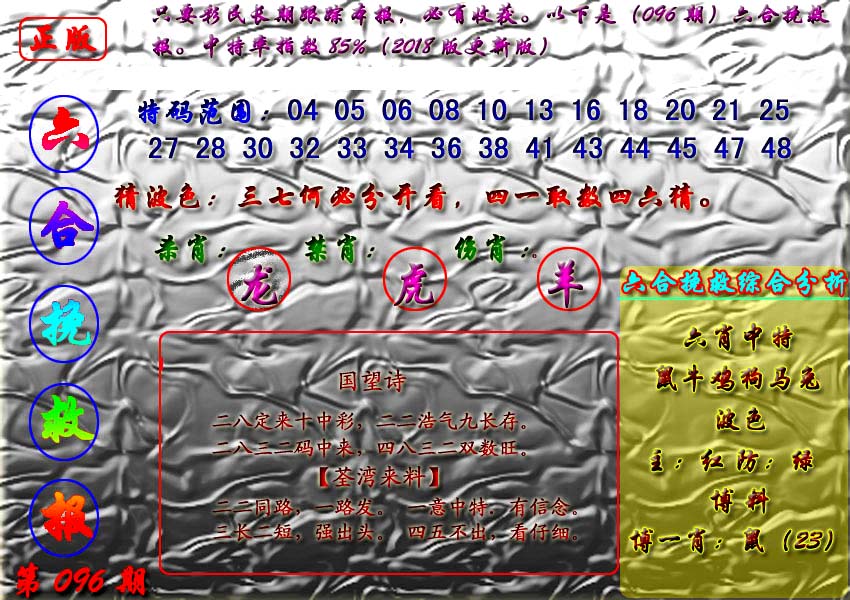 正版
只要彩民长期跟踪本报，必有收获。以下是（096期）六合挽救
报。中特率指数85%（2018版更新版）
六合挽救报
第096期
特码范围：04 05 06 08 10 13 16 18 20 21 25
27 28 30 32 33 34 36 38 41 43 44 45 47 48
猜波色：三七何必分开看，四一取数四六猜。
杀肖：龙 禁肖：虎 伤肖：。羊
国望诗
二八定来十中彩，二二浩气九长存。
二八三二码中来，四八三二双数旺。
【荃湾来料】
二二同路，一路发。 一意中特．有信念。
三长二短，强出头。 四五不出，看仔细。
六合挽救综合分析
六肖中特
鼠牛鸡狗马兔
波色
主：红防：绿
博料
博一肖：鼠（23）